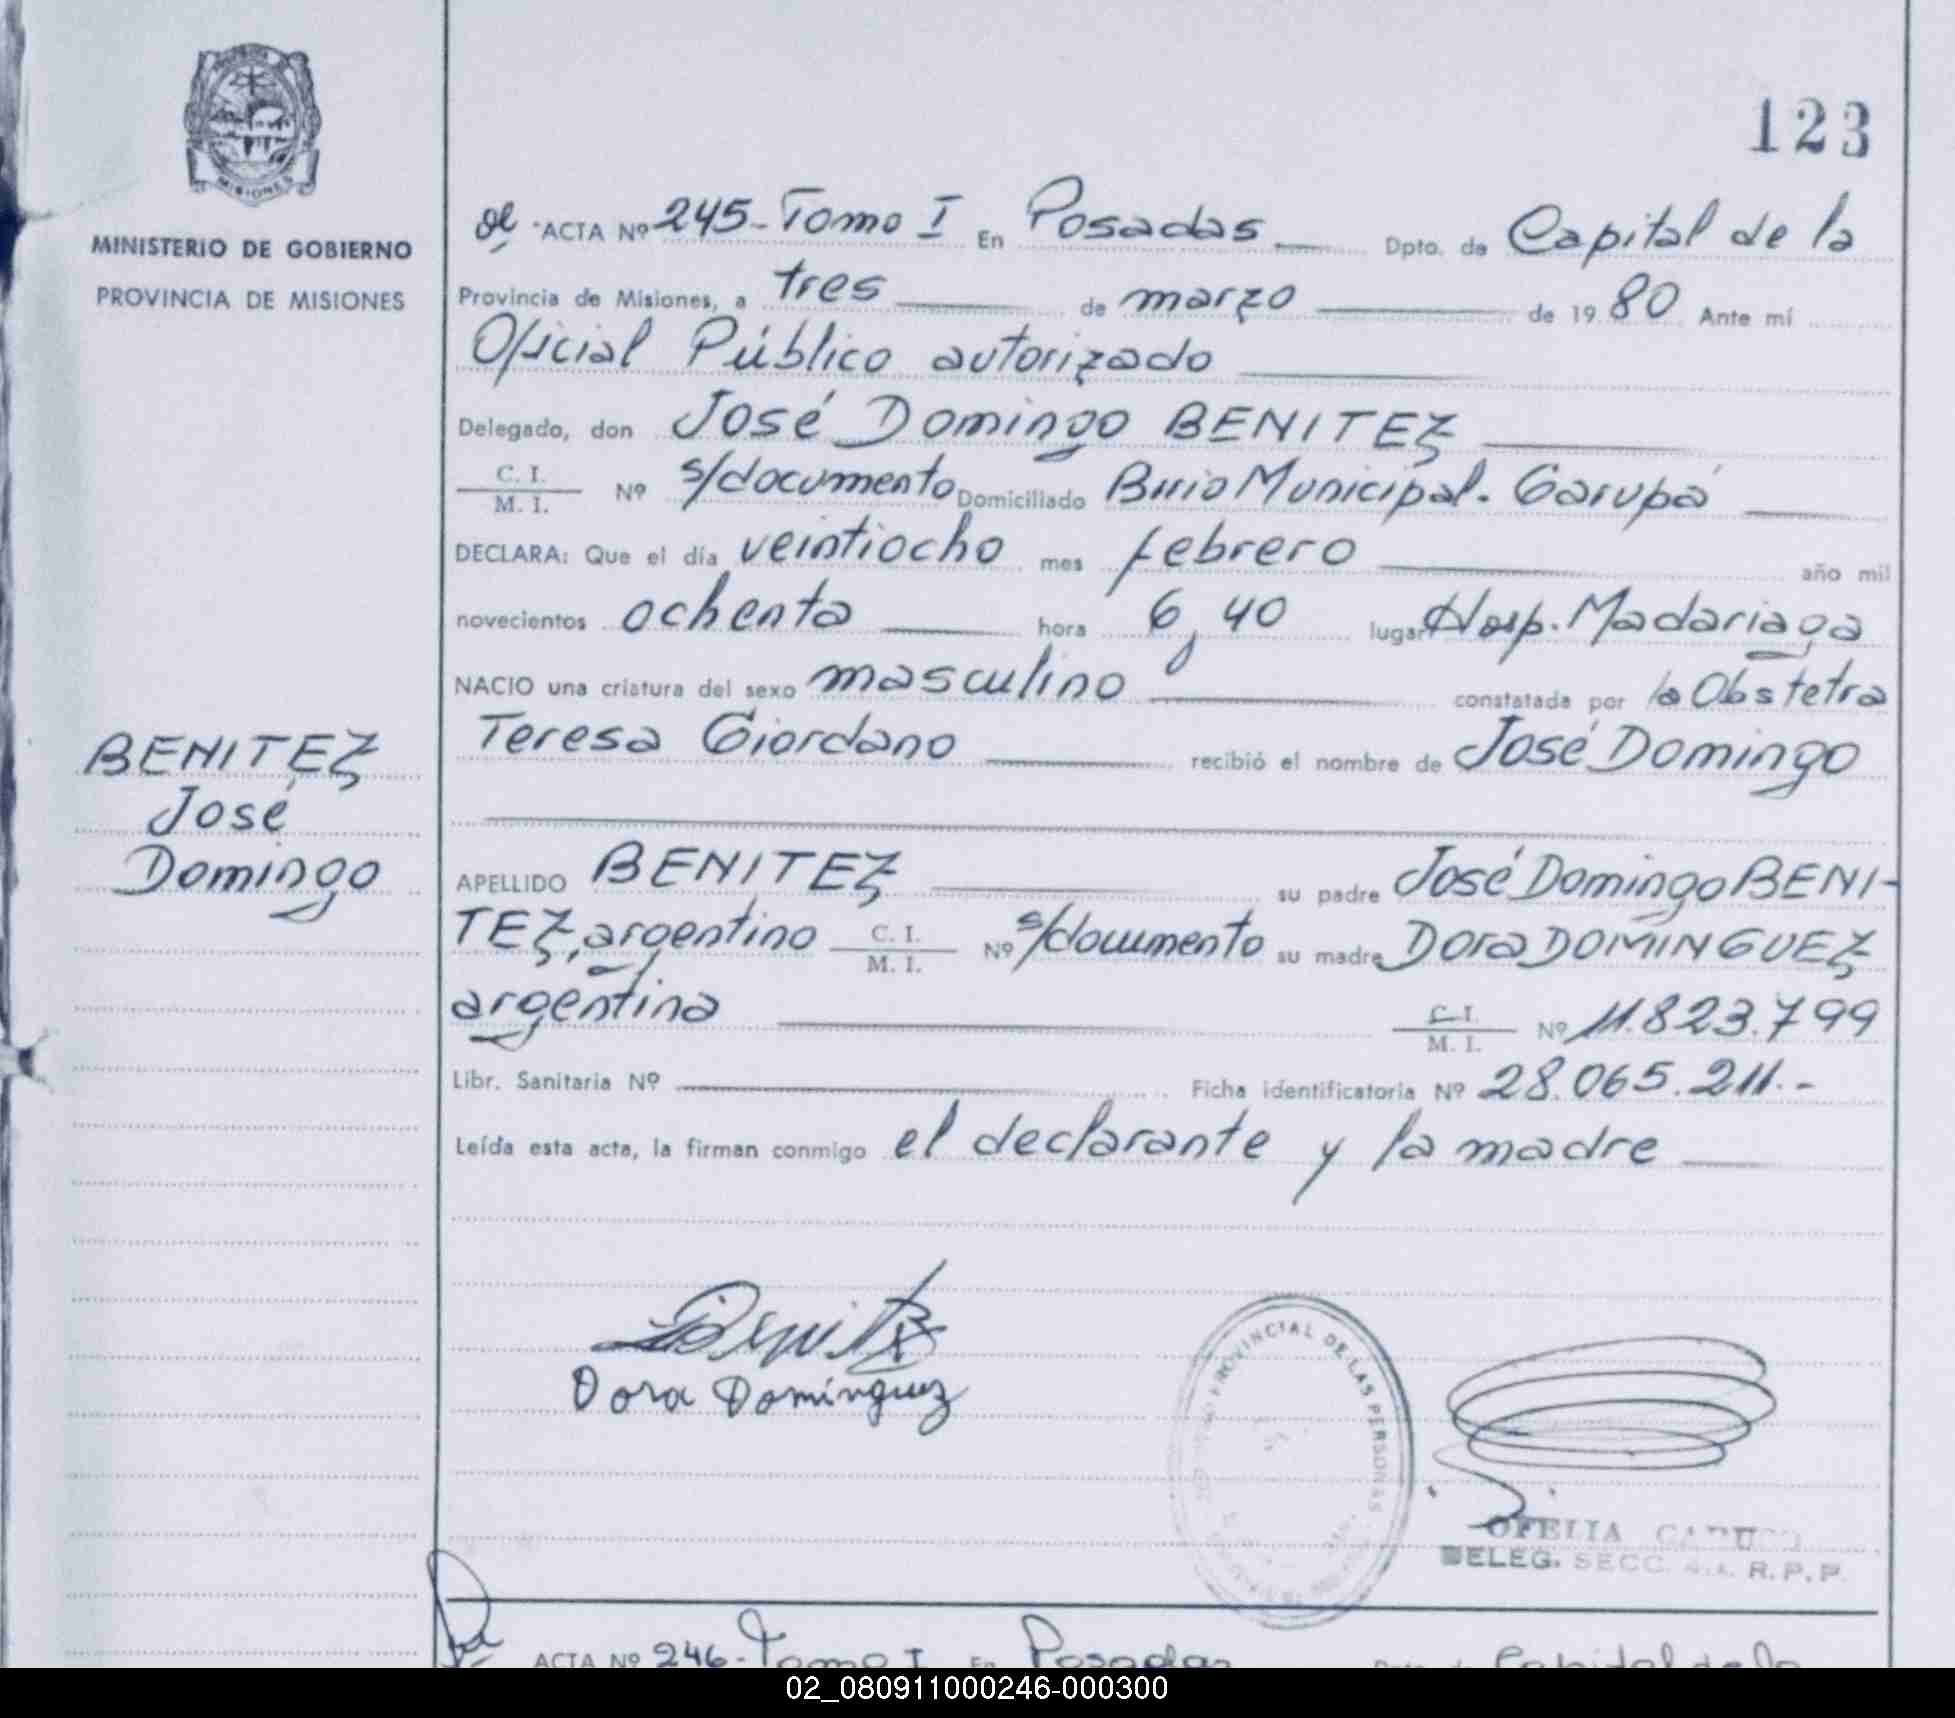 MISIONES
MINISTERIO DE GOBIERNO
PROVINCIA DE MISIONES
BENITEZ
José
Domingo
123
ACTA Nº 245- Tomo I En Posadas Dpto. de Capital de la
Provincia de Misiones, a tres de marzo de 1980 Ante mí
Oficial Público autorizado
Delegado, don José Domingo BENITEZ
C. I. / M. I. Nº s/documento Domiciliado Brrio Municipal. Garupá
DECLARA: Que el día veintiocho mes febrero año mil
novecientos ochenta hora 6,40 lugar Hosp. Madariaga
NACIO una criatura del sexo masculino constatada por la Obstetra
Teresa Giordano recibió el nombre de José Domingo
APELLIDO BENITEZ su padre José Domingo BENI-
TEZ, argentino C. I. / M. I. Nº s/documento su madre Dora DOMINGUEZ
argentina C. I. / M. I. Nº 11.823.799
Libr. Sanitaria Nº Ficha identificatoria Nº 28.065.211.-
Leída esta acta, la firman conmigo el declarante y la madre
Benitez
Dora Domínguez
PROVINCIAL DE LAS PERSONAS
OFELIA
DELEG. SECC. R.P.P.
ACTA Nº 246- Tomo I En Posadas Capital de la
02_080911000246-000300